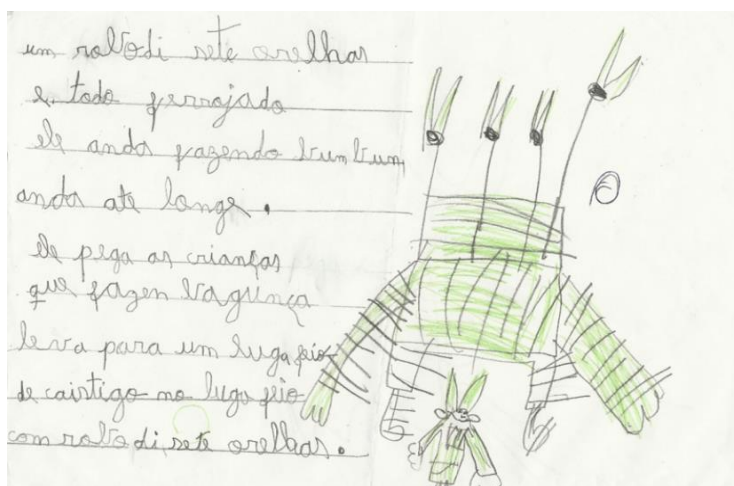 um robodi sete orelhas
e todo ferrojado
ele anda fazendo bum bum,
anda ate longe.
ele pega as crianças
que fazen bagunça
leva para um luga feio
de caistigo no luga feio
com robo di sete orelhas.